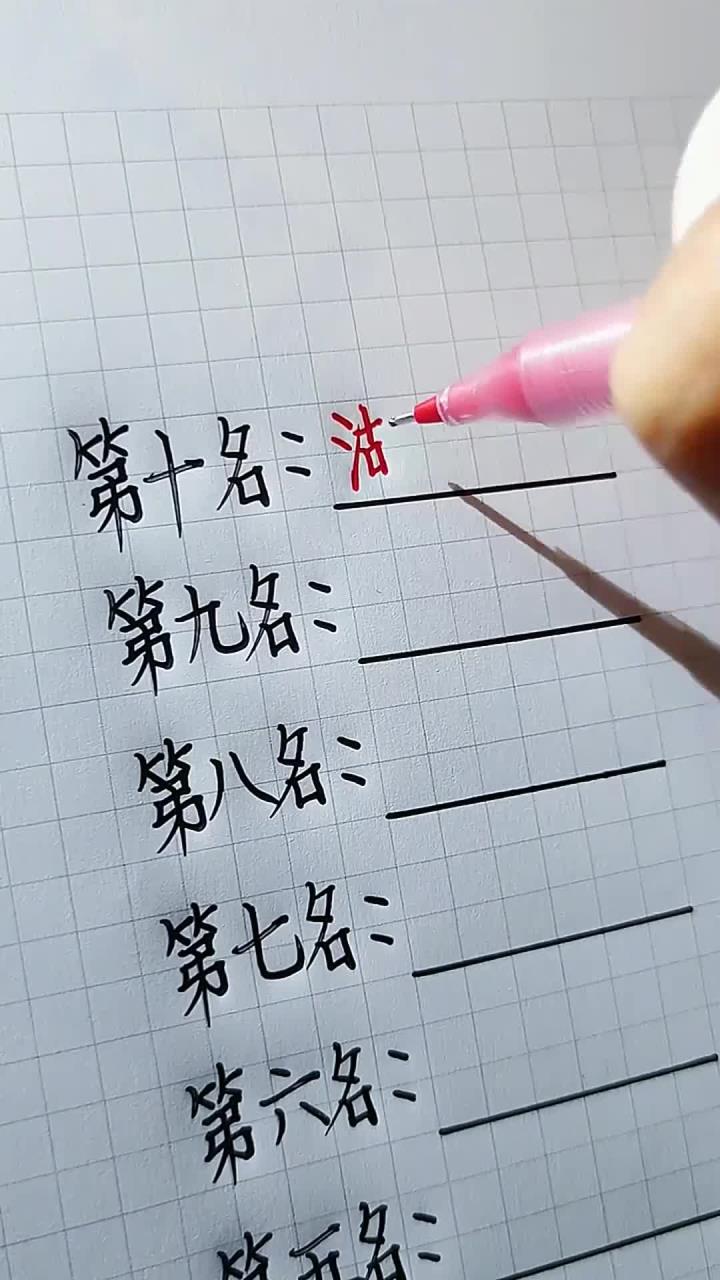 第十名: 沽
第九名:
第八名:
第七名:
第六名:
第五名: